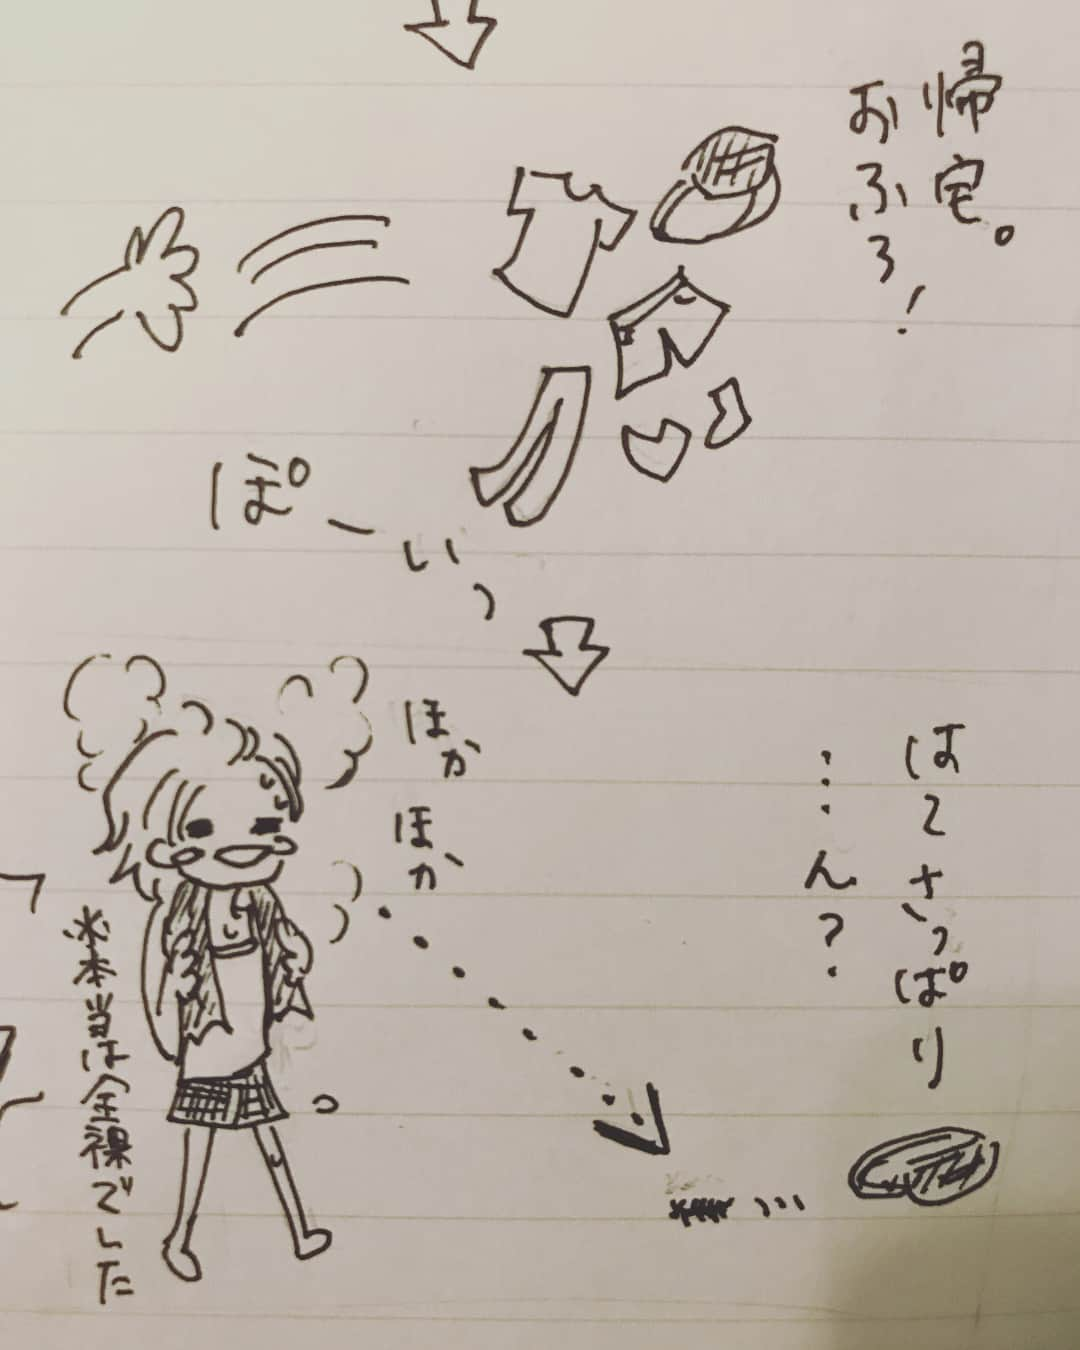 帰宅。
おふろ!
ぽーいっ
ほか
ほか
はーさっぱり
…ん?
※本当は全裸でした